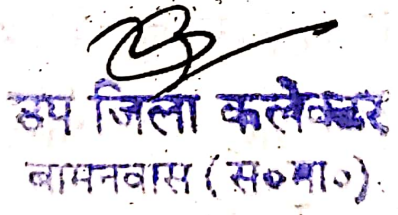 उप जिला कलेक्टर
बामनवास (स०मा०)